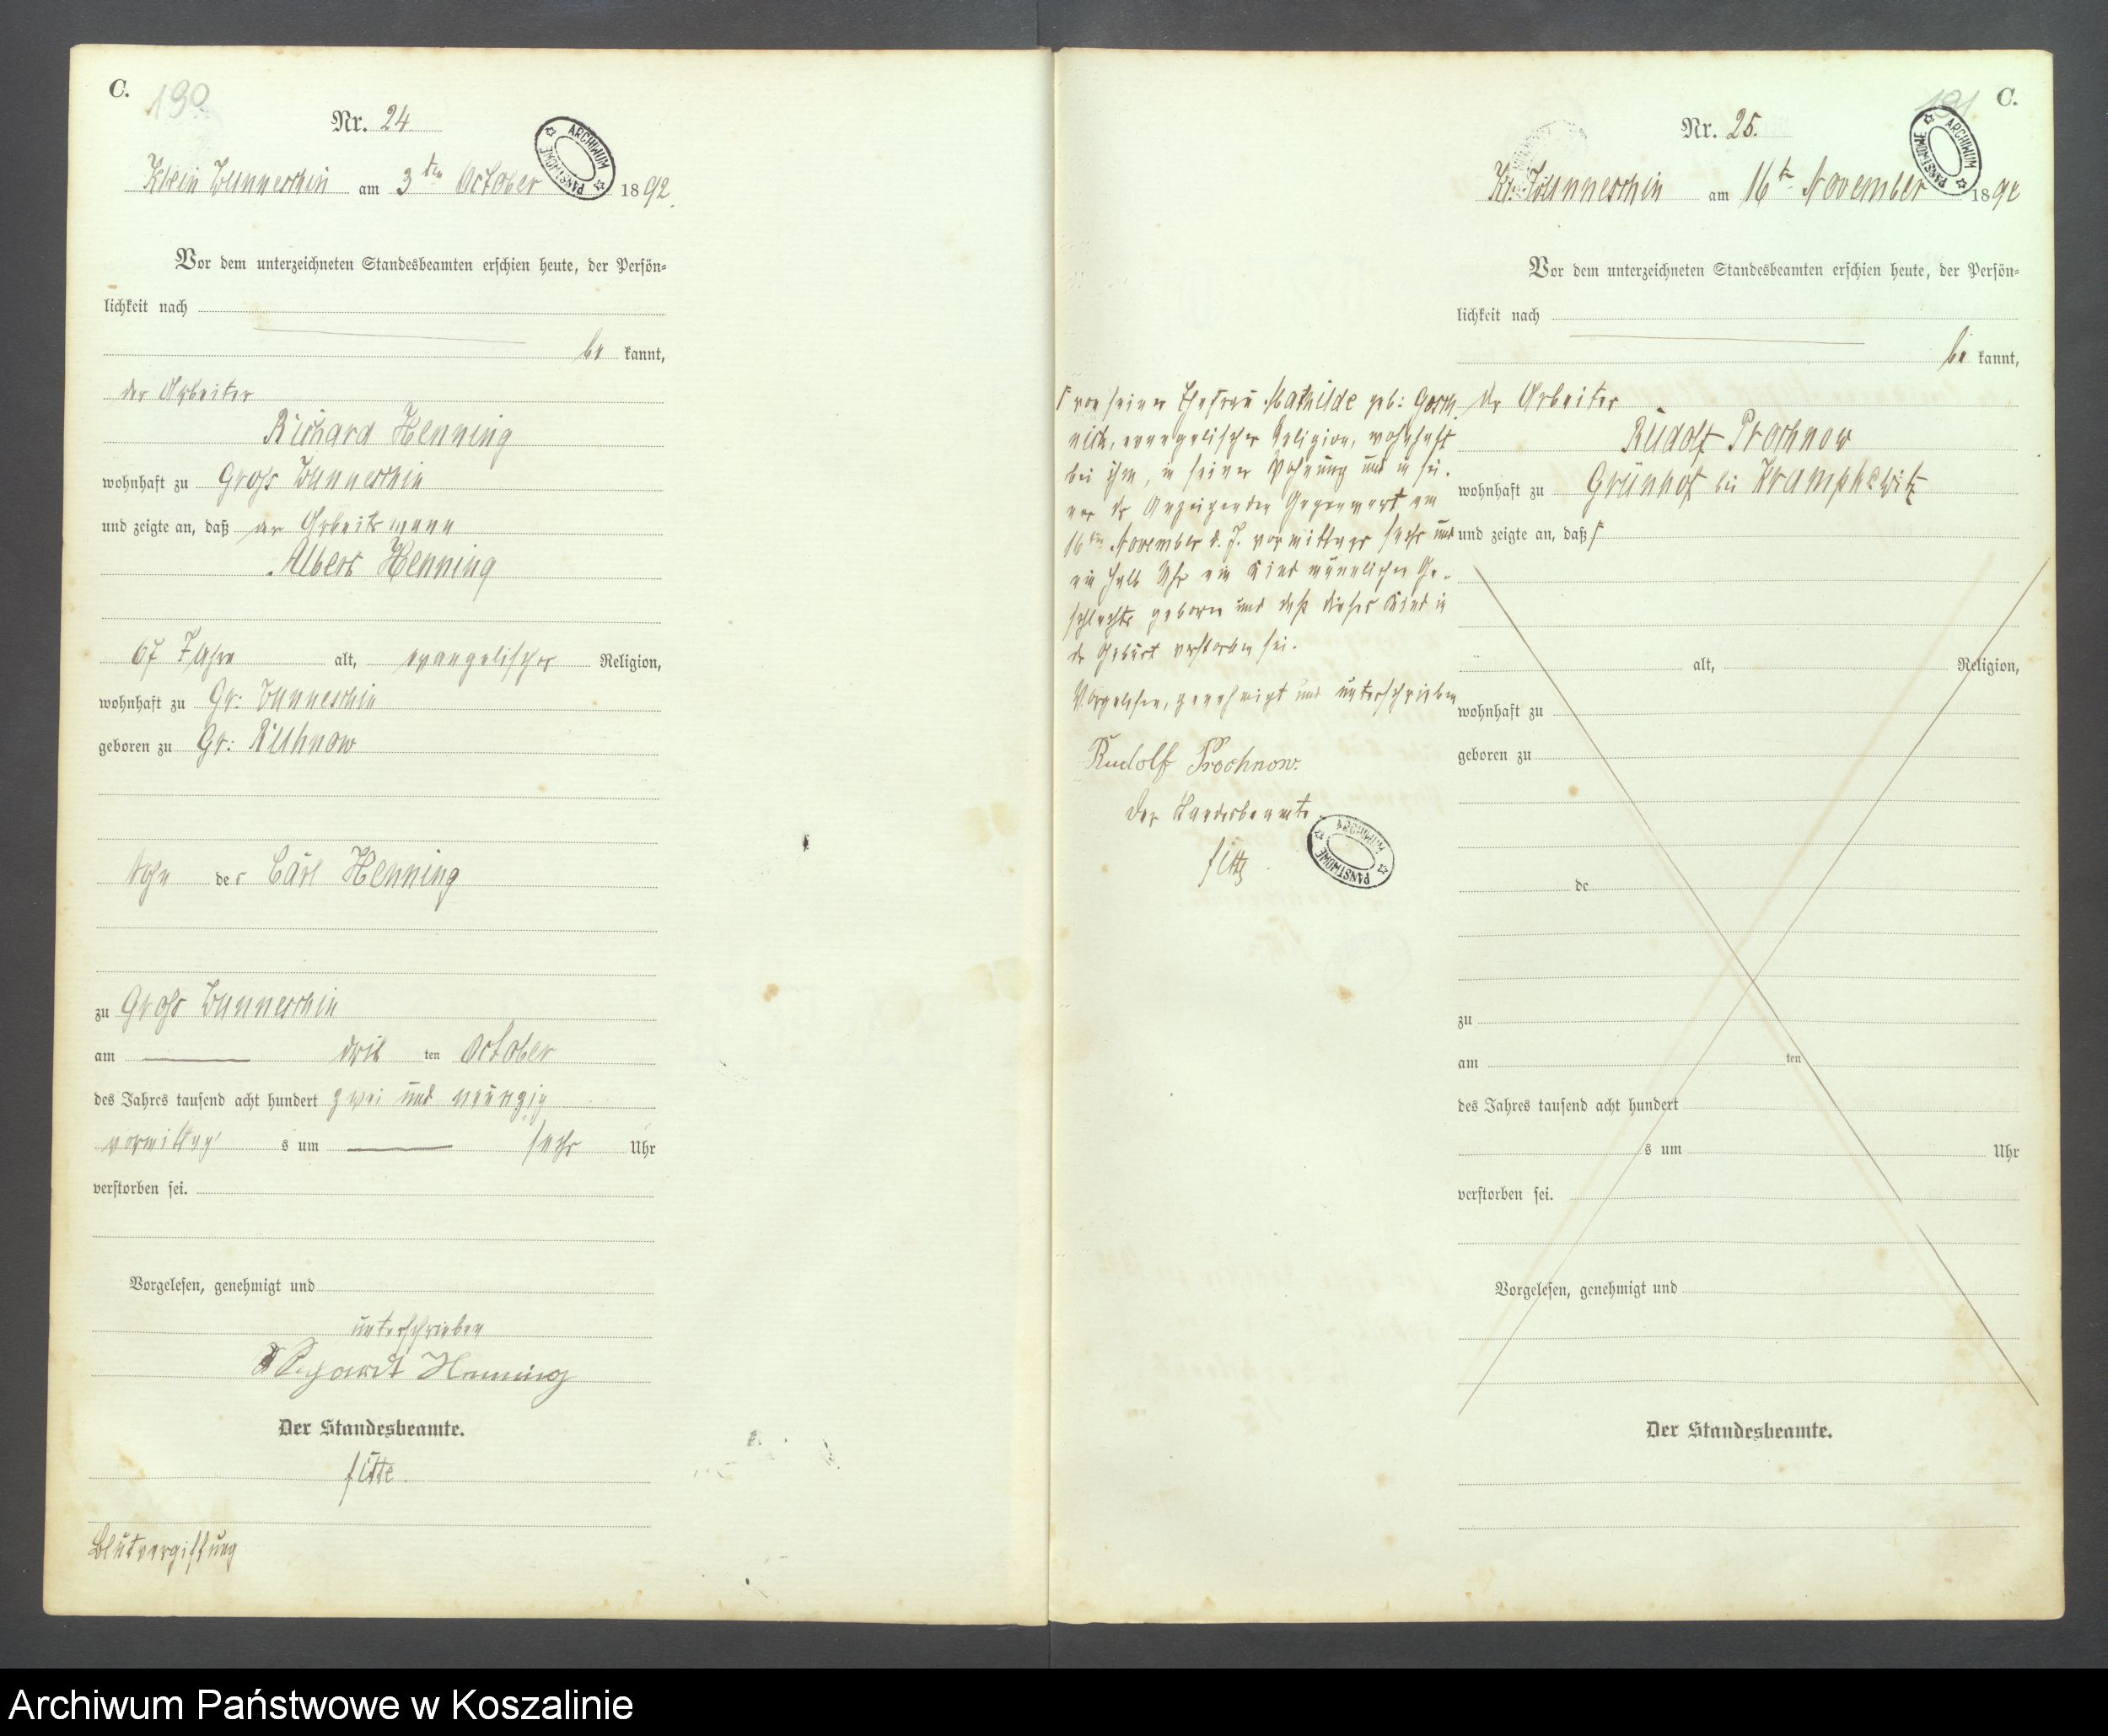 C.
130
Nr. 24.
ARCHIWUM PAŃSTWOWE
Klein Wunneschin am 3ten October 1892.
Vor dem unterzeichneten Standesbeamten erschien heute, der Persön-
lichkeit nach
be kannt,
der Arbeiter
Richard Henning
wohnhaft zu Gross Wunneschin
und zeigte an, daß der Arbeitsmann
Albert Henning
67 Jahre alt, evangelischer Religion,
wohnhaft zu Gr: Wunneschin
geboren zu Gr: Ruhnow
Sohn des Carl Henning
zu Gross Wunneschin
am drit ten October
des Jahres tausend acht hundert zwei und neunzig
vormittag s um sechs Uhr
verstorben sei.
Vorgelesen, genehmigt und
unterschrieben
Henning
Der Standesbeamte.
Blutvergiftung
C.
131
Nr. 25.
ARCHIWUM PAŃSTWOWE
Kl. Wunneschin am 16te November 1892
Vor dem unterzeichneten Standesbeamten erschien heute, der Persön-
lichkeit nach
be kannt,
der Arbeiter
Rudolf Prochnow
wohnhaft zu Grünhof bei Kramphewitz
und zeigte an, daß
von seiner Ehefrau Mathilde geb:
evangelischer Religion, wohnhaft
bei ihm, in seiner Wohnung und in sei-
ner des Anzeigenden Gegenwart am
16ten November d. J. vormittags sechs und
ein halb Uhr ein Kind männlichen Ge-
schlechts geboren und daß dieses Kind in
der Geburt verstorben sei.
Vorgelesen, genehmigt und unterschrieben
Rudolf Prochnow.
Der Standesbeamte
ARCHIWUM PAŃSTWOWE
alt, Religion,
wohnhaft zu
geboren zu
de
zu
am ten
des Jahres tausend acht hundert
s um Uhr
verstorben sei.
Vorgelesen, genehmigt und
Der Standesbeamte.
Archiwum Państwowe w Koszalinie